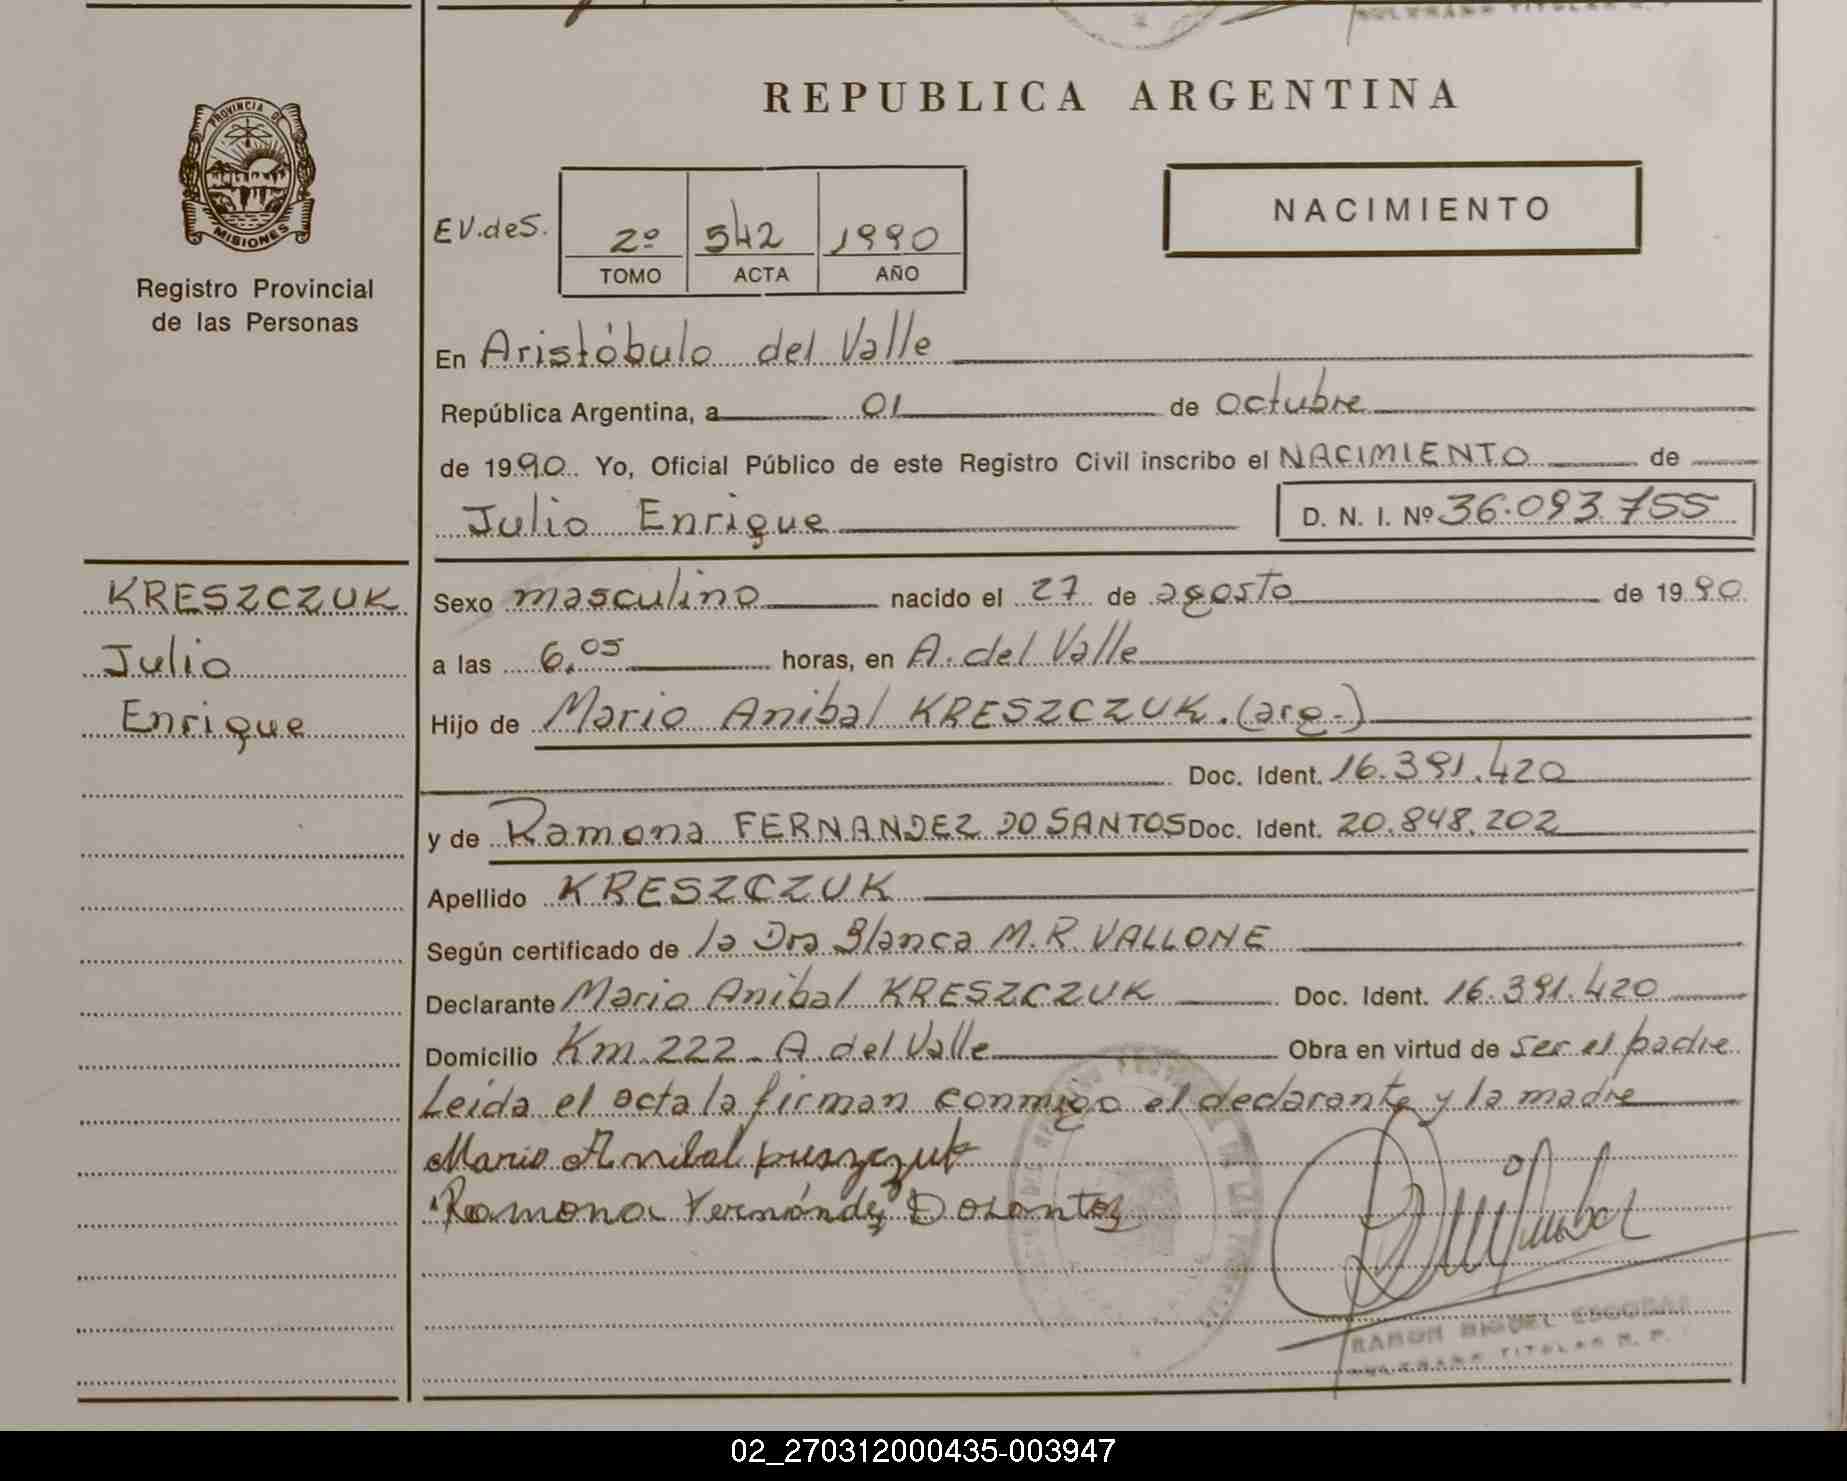 REPUBLICA ARGENTINA
PROVINCIA DE
MISIONES
Registro Provincial
de las Personas
NACIMIENTO
EV.deS. 2º 542 1990
TOMO ACTA AÑO
En Aristóbulo del Valle
República Argentina, a 01 de octubre
de 1990. Yo, Oficial Público de este Registro Civil inscribo el NACIMIENTO de
Julio Enrique D. N. I. Nº 36.093.755
KRESZCZUK
Julio
Enrique
Sexo masculino nacido el 27 de agosto de 1990
a las 6,05 horas, en A. del Valle
Hijo de Mario Anibal KRESZCZUK. (arg.-)
Doc. Ident. 16.391.420
y de Ramona FERNANDEZ DO SANTOS Doc. Ident. 20.848.202
Apellido KRESZCZUK
Según certificado de la Dra Blanca M. R. VALLONE
Declarante Mario Anibal KRESZCZUK Doc. Ident. 16.391.420
Domicilio Km 222 - A. del Valle Obra en virtud de ser el padre
Leída el acta la firman conmigo el declarante y la madre
Mario Anibal
Ramona
RAMON MIGUEL ESCOBAR
TITULAR R. P.
02_270312000435-003947